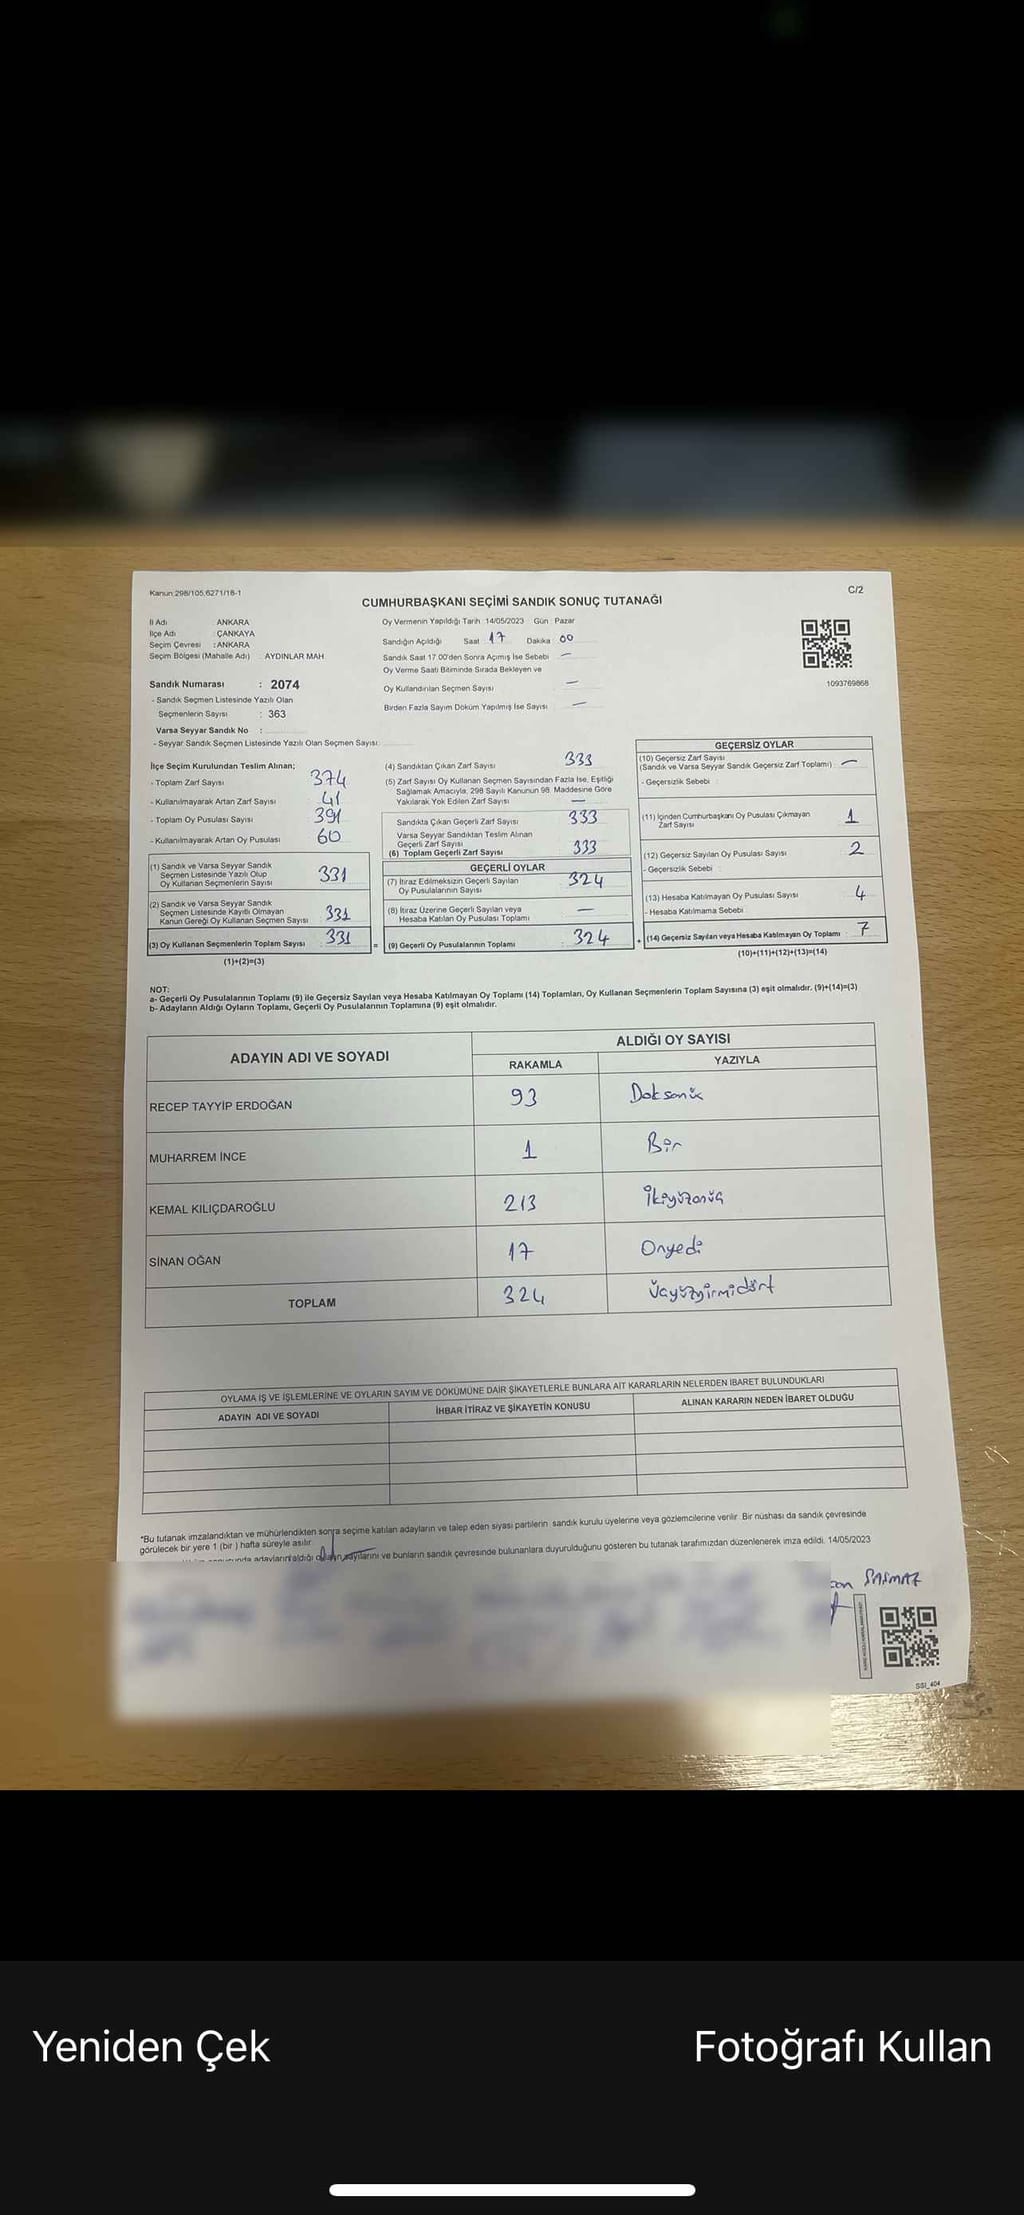 Kanun:298/105,6271/18-1
C/2
CUMHURBAŞKANI SEÇİMİ SANDIK SONUÇ TUTANAĞI
İl Adı ANKARA
İlçe Adı : ÇANKAYA
Seçim Çevresi : ANKARA
Seçim Bölgesi (Mahalle Adı) AYDINLAR MAH
Sandık Numarası : 2074
- Sandık Seçmen Listesinde Yazılı Olan
Seçmenlerin Sayısı : 363
Varsa Seyyar Sandık No :
- Seyyar Sandık Seçmen Listesinde Yazılı Olan Seçmen Sayısı:
Oy Vermenin Yapıldığı Tarih :14/05/2023 Gün : Pazar
Sandığın Açıldığı Saat 17 Dakika 00
Sandık Saat 17.00'den Sonra Açımış İse Sebebi —
Oy Verme Saati Bitiminde Sırada Bekleyen ve
Oy Kullandırılan Seçmen Sayısı —
Birden Fazla Sayım Döküm Yapılmış İse Sayısı —
1093769868
İlçe Seçim Kurulundan Teslim Alınan;
- Toplam Zarf Sayısı 374
- Kullanılmayarak Artan Zarf Sayısı 41
- Toplam Oy Pusulası Sayısı 391
- Kullanılmayarak Artan Oy Pusulası 60
(1) Sandık ve Varsa Seyyar Sandık
Seçmen Listesinde Yazılı Olup
Oy Kullanan Seçmenlerin Sayısı 331
(2) Sandık ve Varsa Seyyar Sandık
Seçmen Listesinde Kayıtlı Olmayan
Kanun Gereği Oy Kullanan Seçmen Sayısı 331
(3) Oy Kullanan Seçmenlerin Toplam Sayısı 331
(1)+(2)=(3)
(4) Sandıktan Çıkan Zarf Sayısı 333
(5) Zarf Sayısı Oy Kullanan Seçmen Sayısından Fazla İse, Eşitliği
Sağlamak Amacıyla, 298 Sayılı Kanunun 98. Maddesine Göre
Yakılarak Yok Edilen Zarf Sayısı —
Sandıkta Çıkan Geçerli Zarf Sayısı 333
Varsa Seyyar Sandıktan Teslim Alınan
Geçerli Zarf Sayısı
(6) Toplam Geçerli Zarf Sayısı 333
GEÇERLİ OYLAR
(7) İtiraz Edilmeksizin Geçerli Sayılan
Oy Pusulalarının Sayısı 324
(8) İtiraz Üzerine Geçerli Sayılan veya
Hesaba Katılan Oy Pusulası Toplamı —
= (9) Geçerli Oy Pusulalarının Toplamı 324
GEÇERSİZ OYLAR
(10) Geçersiz Zarf Sayısı
(Sandık ve Varsa Seyyar Sandık Geçersiz Zarf Toplamı) —
- Geçersizlik Sebebi :
(11) İçinden Cumhurbaşkanı Oy Pusulası Çıkmayan
Zarf Sayısı 1
(12) Geçersiz Sayılan Oy Pusulası Sayısı 2
- Geçersizlik Sebebi :
(13) Hesaba Katılmayan Oy Pusulası Sayısı 4
- Hesaba Katılmama Sebebi
+ (14) Geçersiz Sayılan veya Hesaba Katılmayan Oy Toplamı 7
(10)+(11)+(12)+(13)=(14)
NOT:
a- Geçerli Oy Pusulalarının Toplamı (9) ile Geçersiz Sayılan veya Hesaba Katılmayan Oy Toplamı (14) Toplamları, Oy Kullanan Seçmenlerin Toplam Sayısına (3) eşit olmalıdır. (9)+(14)=(3)
b- Adayların Aldığı Oyların Toplamı, Geçerli Oy Pusulalarının Toplamına (9) eşit olmalıdır.
ADAYIN ADI VE SOYADI
ALDIĞI OY SAYISI
RAKAMLA YAZIYLA
RECEP TAYYİP ERDOĞAN 93 Doksanüç
MUHARREM İNCE 1 Bir
KEMAL KILIÇDAROĞLU 213 İkiyüzonüç
SİNAN OĞAN 17 Onyedi
TOPLAM 324 Üçyüzyirmidört
OYLAMA İŞ VE İŞLEMLERİNE VE OYLARIN SAYIM VE DÖKÜMÜNE DAİR ŞİKAYETLERLE BUNLARA AİT KARARLARIN NELERDEN İBARET BULUNDUKLARI
ADAYIN ADI VE SOYADI İHBAR İTİRAZ VE ŞİKAYETİN KONUSU ALINAN KARARIN NEDEN İBARET OLDUĞU
*Bu tutanak imzalandıktan ve mühürlendikten sonra seçime katılan adayların ve talep eden siyasi partilerin sandık kurulu üyelerine veya gözlemcilerine verilir. Bir nüshası da sandık çevresinde
görülecek bir yere 1 (bir) hafta süreyle asılır.
adayların aldığı oyların sayılarını ve bunların sandık çevresinde bulunanlara duyurulduğunu gösteren bu tutanak tarafımızdan düzenlenerek imza edildi. 14/05/2023
SSI_404
Yeniden Çek
Fotoğrafı Kullan